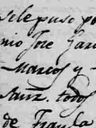 se le puso po
nio Jose Jan
Marcos y
Ruiz. todos
de Fran.la